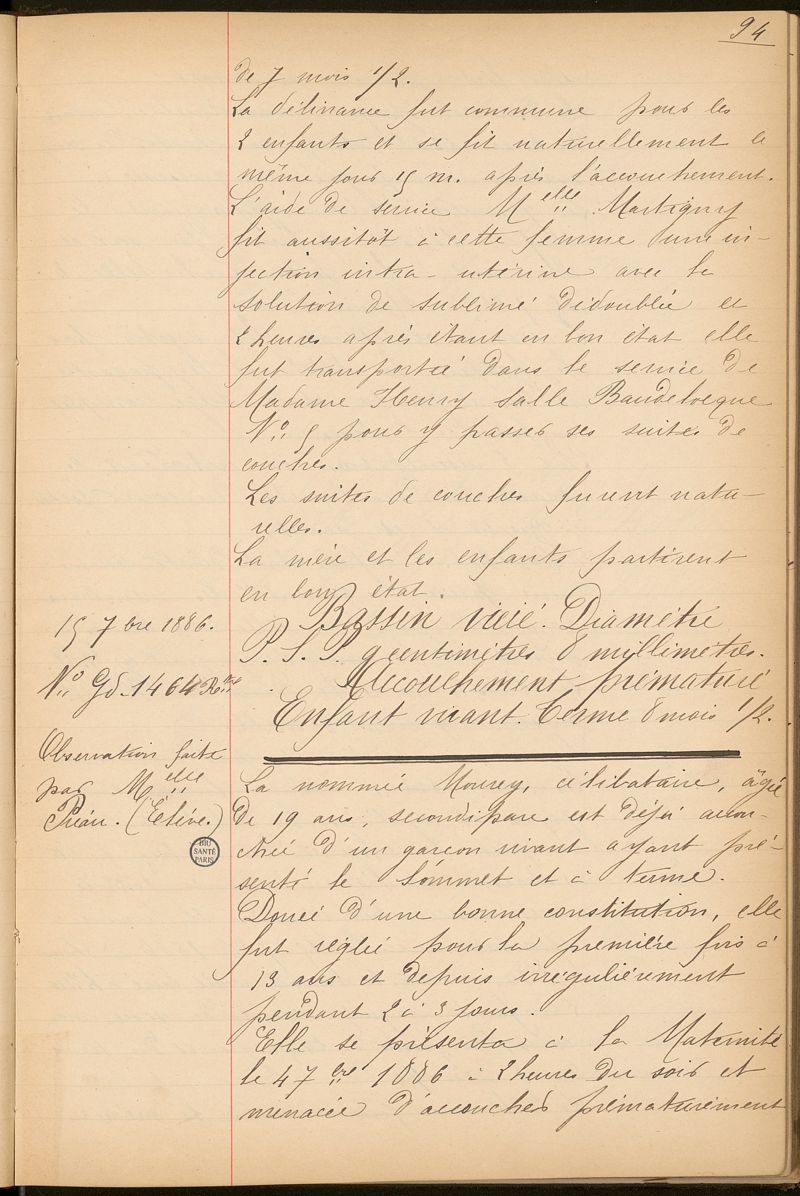 94
de 7 mois 1/2.
La délivrance fut commune pour les
2 enfants et se fit naturellement le
même jour 15 m. après l'accouchement.
L'aide de service Melle Martigny
fit aussitôt à cette femme une in-
jection intra-utérine avec la
solution de sublimé dédoublée et
2 heures après étant en bon état elle
fut transportée dans le service de
Madame Henry salle Baudelocque
No 5 pour y passer ses suites de
couches.
Les suites de couches furent natu-
relles.
La mère et les enfants partirent
en bon état.
15 7bre 1886.
No Gd. 1464
Observation faite
par Melle
(Elève.)
BIU
SANTÉ
PARIS
Bassin vicié. Diamètre
P. S. P. 9 centimètres 8 millimètres.
Accouchement prématuré
Enfant vivant. Terme 8 mois 1/2.
La nommée Mourey, célibataire, âgée
de 19 ans, secondipare est déjà accou-
chée d'un garçon vivant ayant pré-
senté le sommet et à terme.
Douée d'une bonne constitution, elle
fut réglée pour la première fois à
13 ans et depuis irrégulièrement
pendant 2 à 3 jours.
Elle se présenta à la Maternité
le 4 7bre 1886 à 2 heures du soir et
menacée d'accoucher prématurément